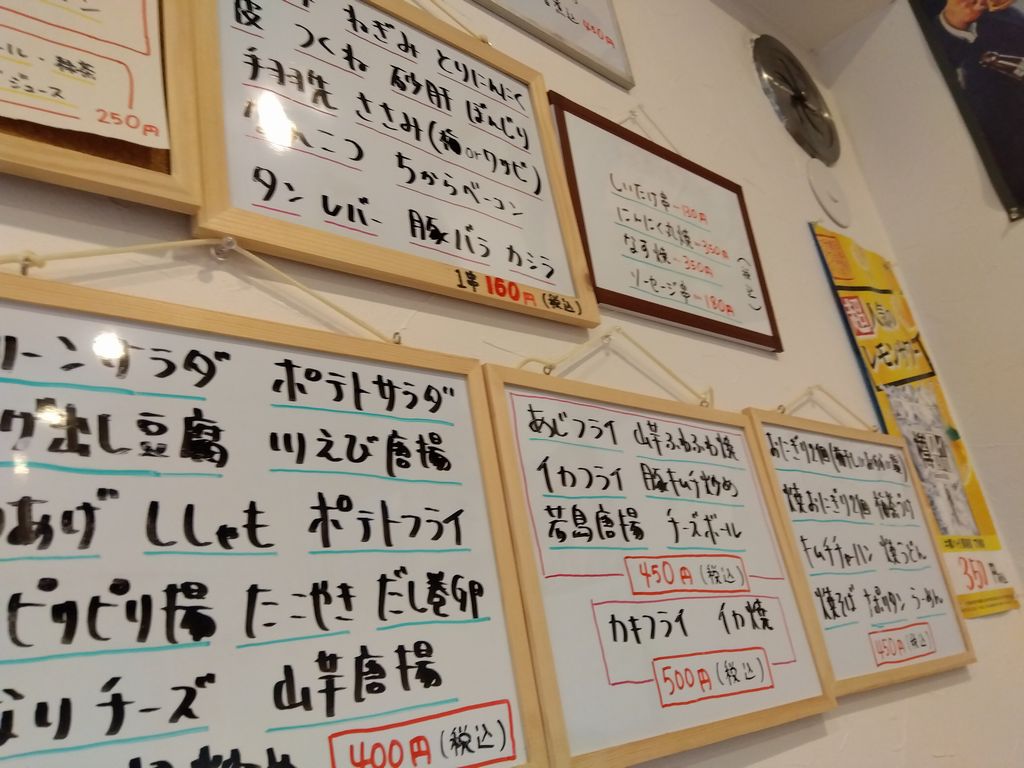 税込 450円
ール・
ジュース
250円
皮 ねぎみ とりにんにく
つくね 砂肝 ぼんじり
手羽先 ささみ(梅orワサビ)
んこつ ちからベーコン
タン レバー 豚バラ カシラ
1串 160円 (税込)
しいたけ串-180円
にんにく丸焼-350円
なす焼-350円
ソーセージ串-180円
(税込)
人気の
レモンサワー
351円
リーンサラダ ポテトサラダ
ゲ出し豆腐 川えび唐揚
あげ ししゃも ポテトフライ
ピリピリ揚 たこやき だし巻
なりチーズ 山芋唐揚
400円(税込)
あじフライ 山芋ふわふわ焼
イカフライ 豚キムチ炒め
若鳥唐揚 チーズボール
450円(税込)
カキフライ イカ焼
500円(税込)
おにぎり2個
焼おにぎり2個
キムチチャーハン 焼うどん
焼そば ナポリタン らーめん
450円(税込)